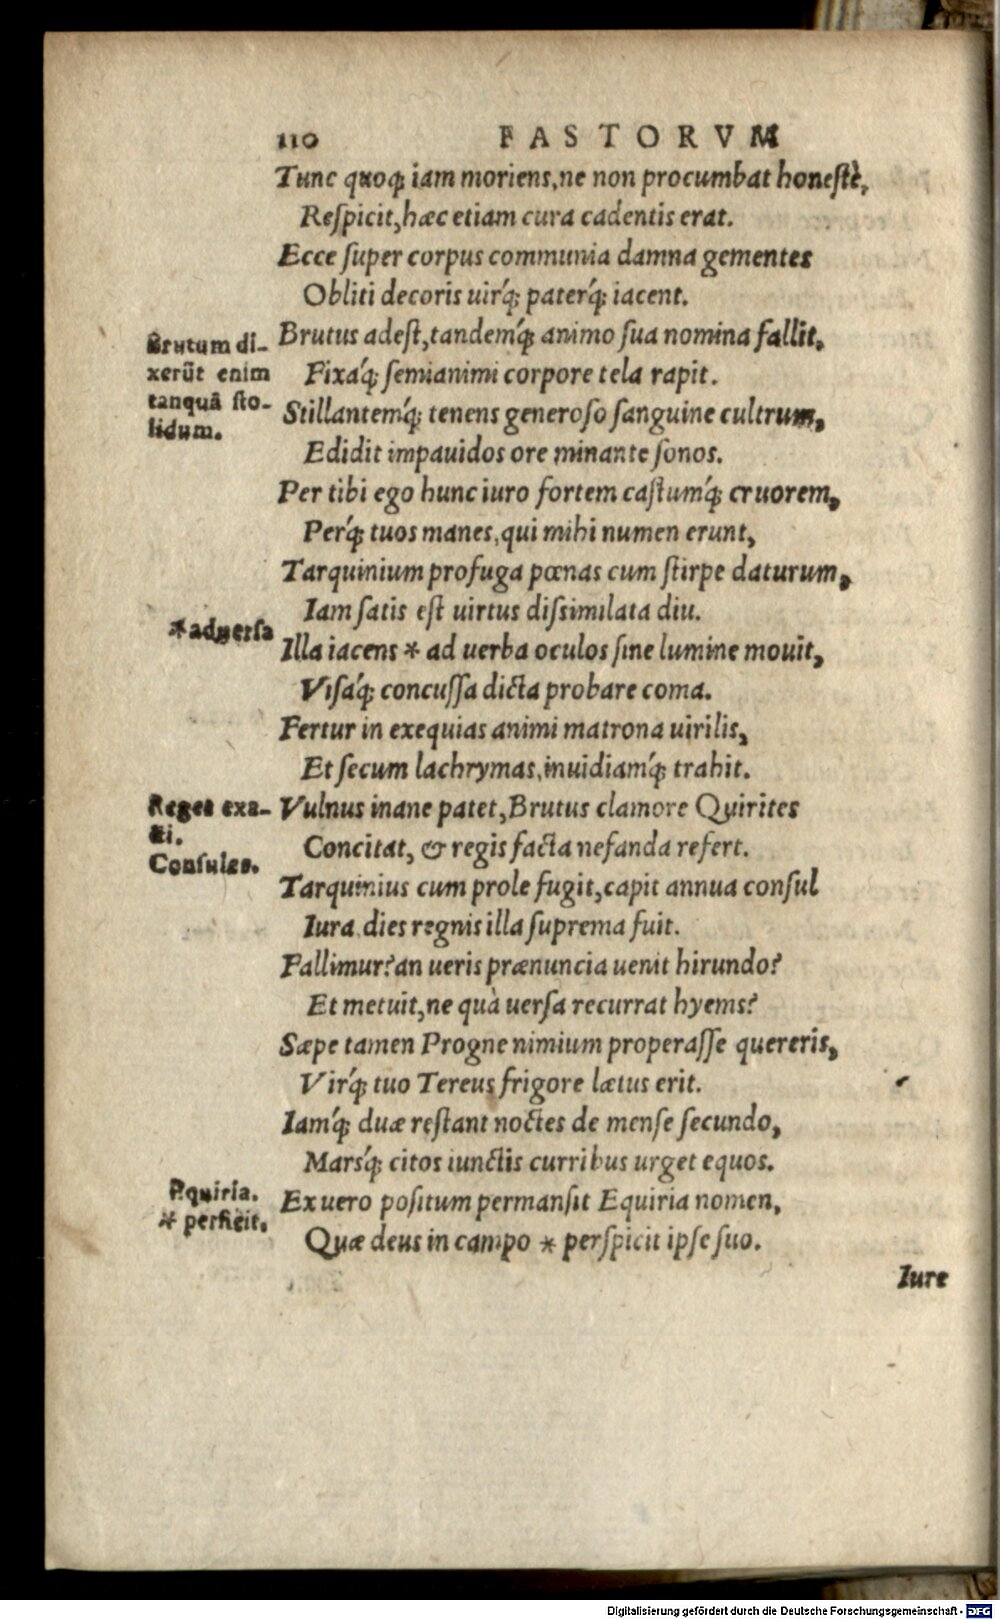 110 FASTORVM
Tunc quoq; iam moriens, ne non procumbat honestè,
Respicit, hæc etiam cura cadentis erat.
Ecce super corpus communia damna gementes
Obliti decoris uirq́; paterq́; iacent.
Brutus adest, tandemq́; animo sua nomina fallit,
Fixaq́; semianimi corpore tela rapit.
Stillantemq́; tenens generoso sanguine cultrum,
Edidit impauidos ore minante sonos.
Per tibi ego hunc iuro fortem castumq́; cruorem,
Perq́; tuos manes, qui mihi numen erunt,
Tarquinium profuga pœnas cum stirpe daturum,
Iam satis est uirtus dissimilata diu.
Illa iacens * ad uerba oculos sine lumine mouit,
Visaq́; concussa dicta probare coma.
Fertur in exequias animi matrona uirilis,
Et secum lachrymas, inuidiamq́; trahit.
Vulnus inane patet, Brutus clamore Quirites
Concitat, & regis facta nefanda refert.
Tarquinius cum prole fugit, capit annua consul
Iura, dies regnis illa suprema fuit.
Fallimur? an ueris prænuncia uenit hirundo?
Et metuit, ne quà uersa recurrat hyems?
Sæpe tamen Progne nimium properasse quereris,
Virq́; tuo Tereus frigore lætus erit.
Iamq́; duæ restant noctes de mense secundo,
Marsq́; citos iunctis curribus urget equos.
Ex uero positum permansit Equiria nomen,
Quæ deus in campo * perspicit ipse suo.
Iure
Brutum di-
xerūt enim
tanquā sto-
lidum.
*aduersa
Reges exa-
cti.
Consules.
Equiria.
* perficit.
Digitalisierung gefördert durch die Deutsche Forschungsgemeinschaft - DFG